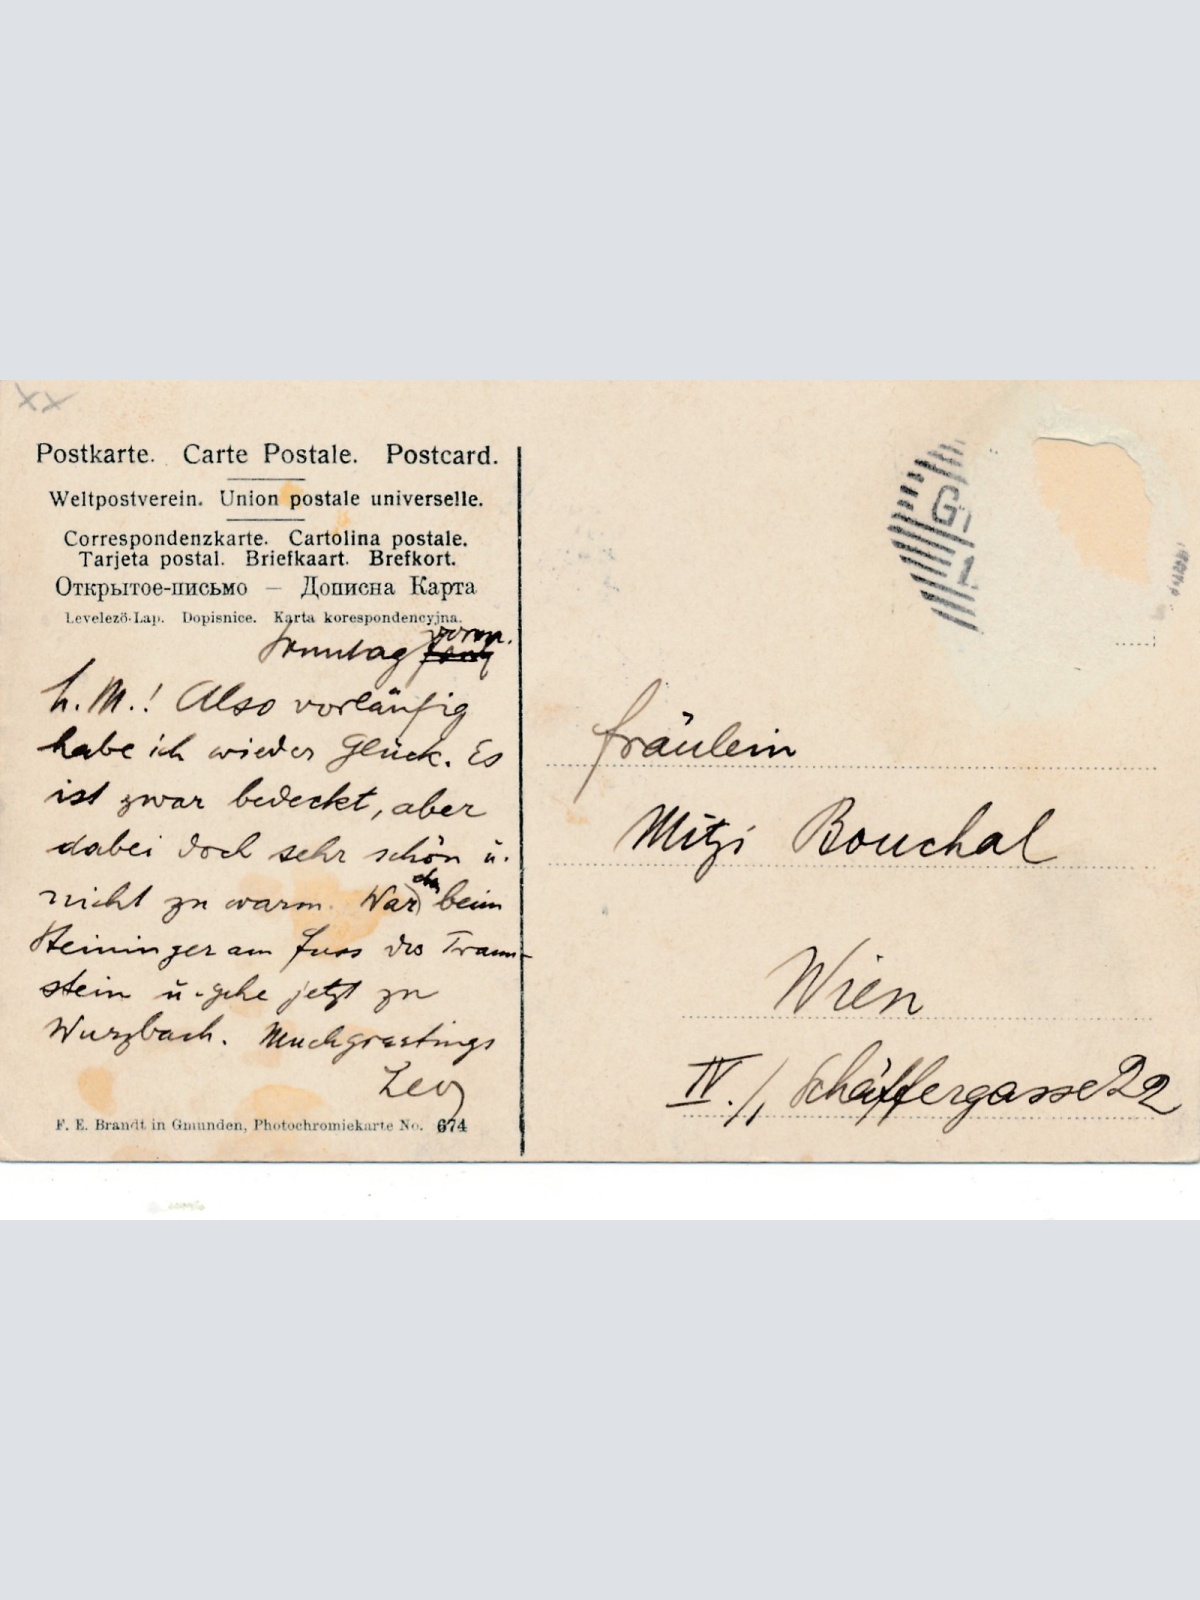 XX
Postkarte. Carte Postale. Postcard.
Weltpostverein. Union postale universelle.
Correspondenzkarte. Cartolina postale.
Tarjeta postal. Briefkaart. Brefkort.
Открытое-письмо — Дописна Карта
Levelezö-Lap. Dopisnice. Karta korespondencyjna.
Sonntag vorm.
L. M.! Also vorläufig
habe ich wieder Glück. Es
ist zwar bedeckt, aber
dabei doch sehr schön u.
nicht zu warm. War beim
Steininger am Fuss des Traun-
stein u. gehe jetzt zu
Wurzbach.
F. E. Brandt in Gmunden, Photochromiekarte No. 674
G
1
Fräulein
Mitzi Bouchal
Wien
IV./, Schäffergasse 22